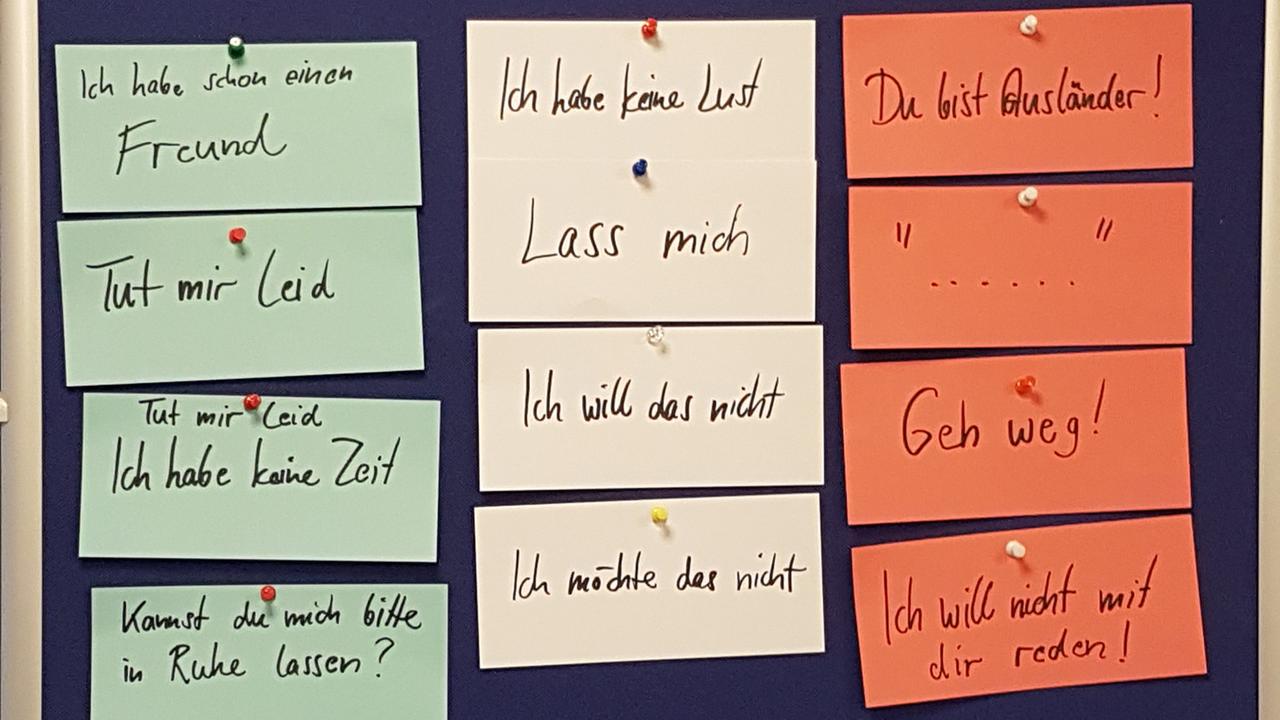 Ich habe schon einen
Freund
Tut mir Leid
Tut mir Leid
Ich habe keine Zeit
Kannst du mich bitte
in Ruhe lassen?
Ich habe keine Lust
Lass mich
Ich will das nicht
Ich möchte das nicht
Du bist Ausländer!
" "
......
Geh weg!
Ich will nicht mit
dir reden!